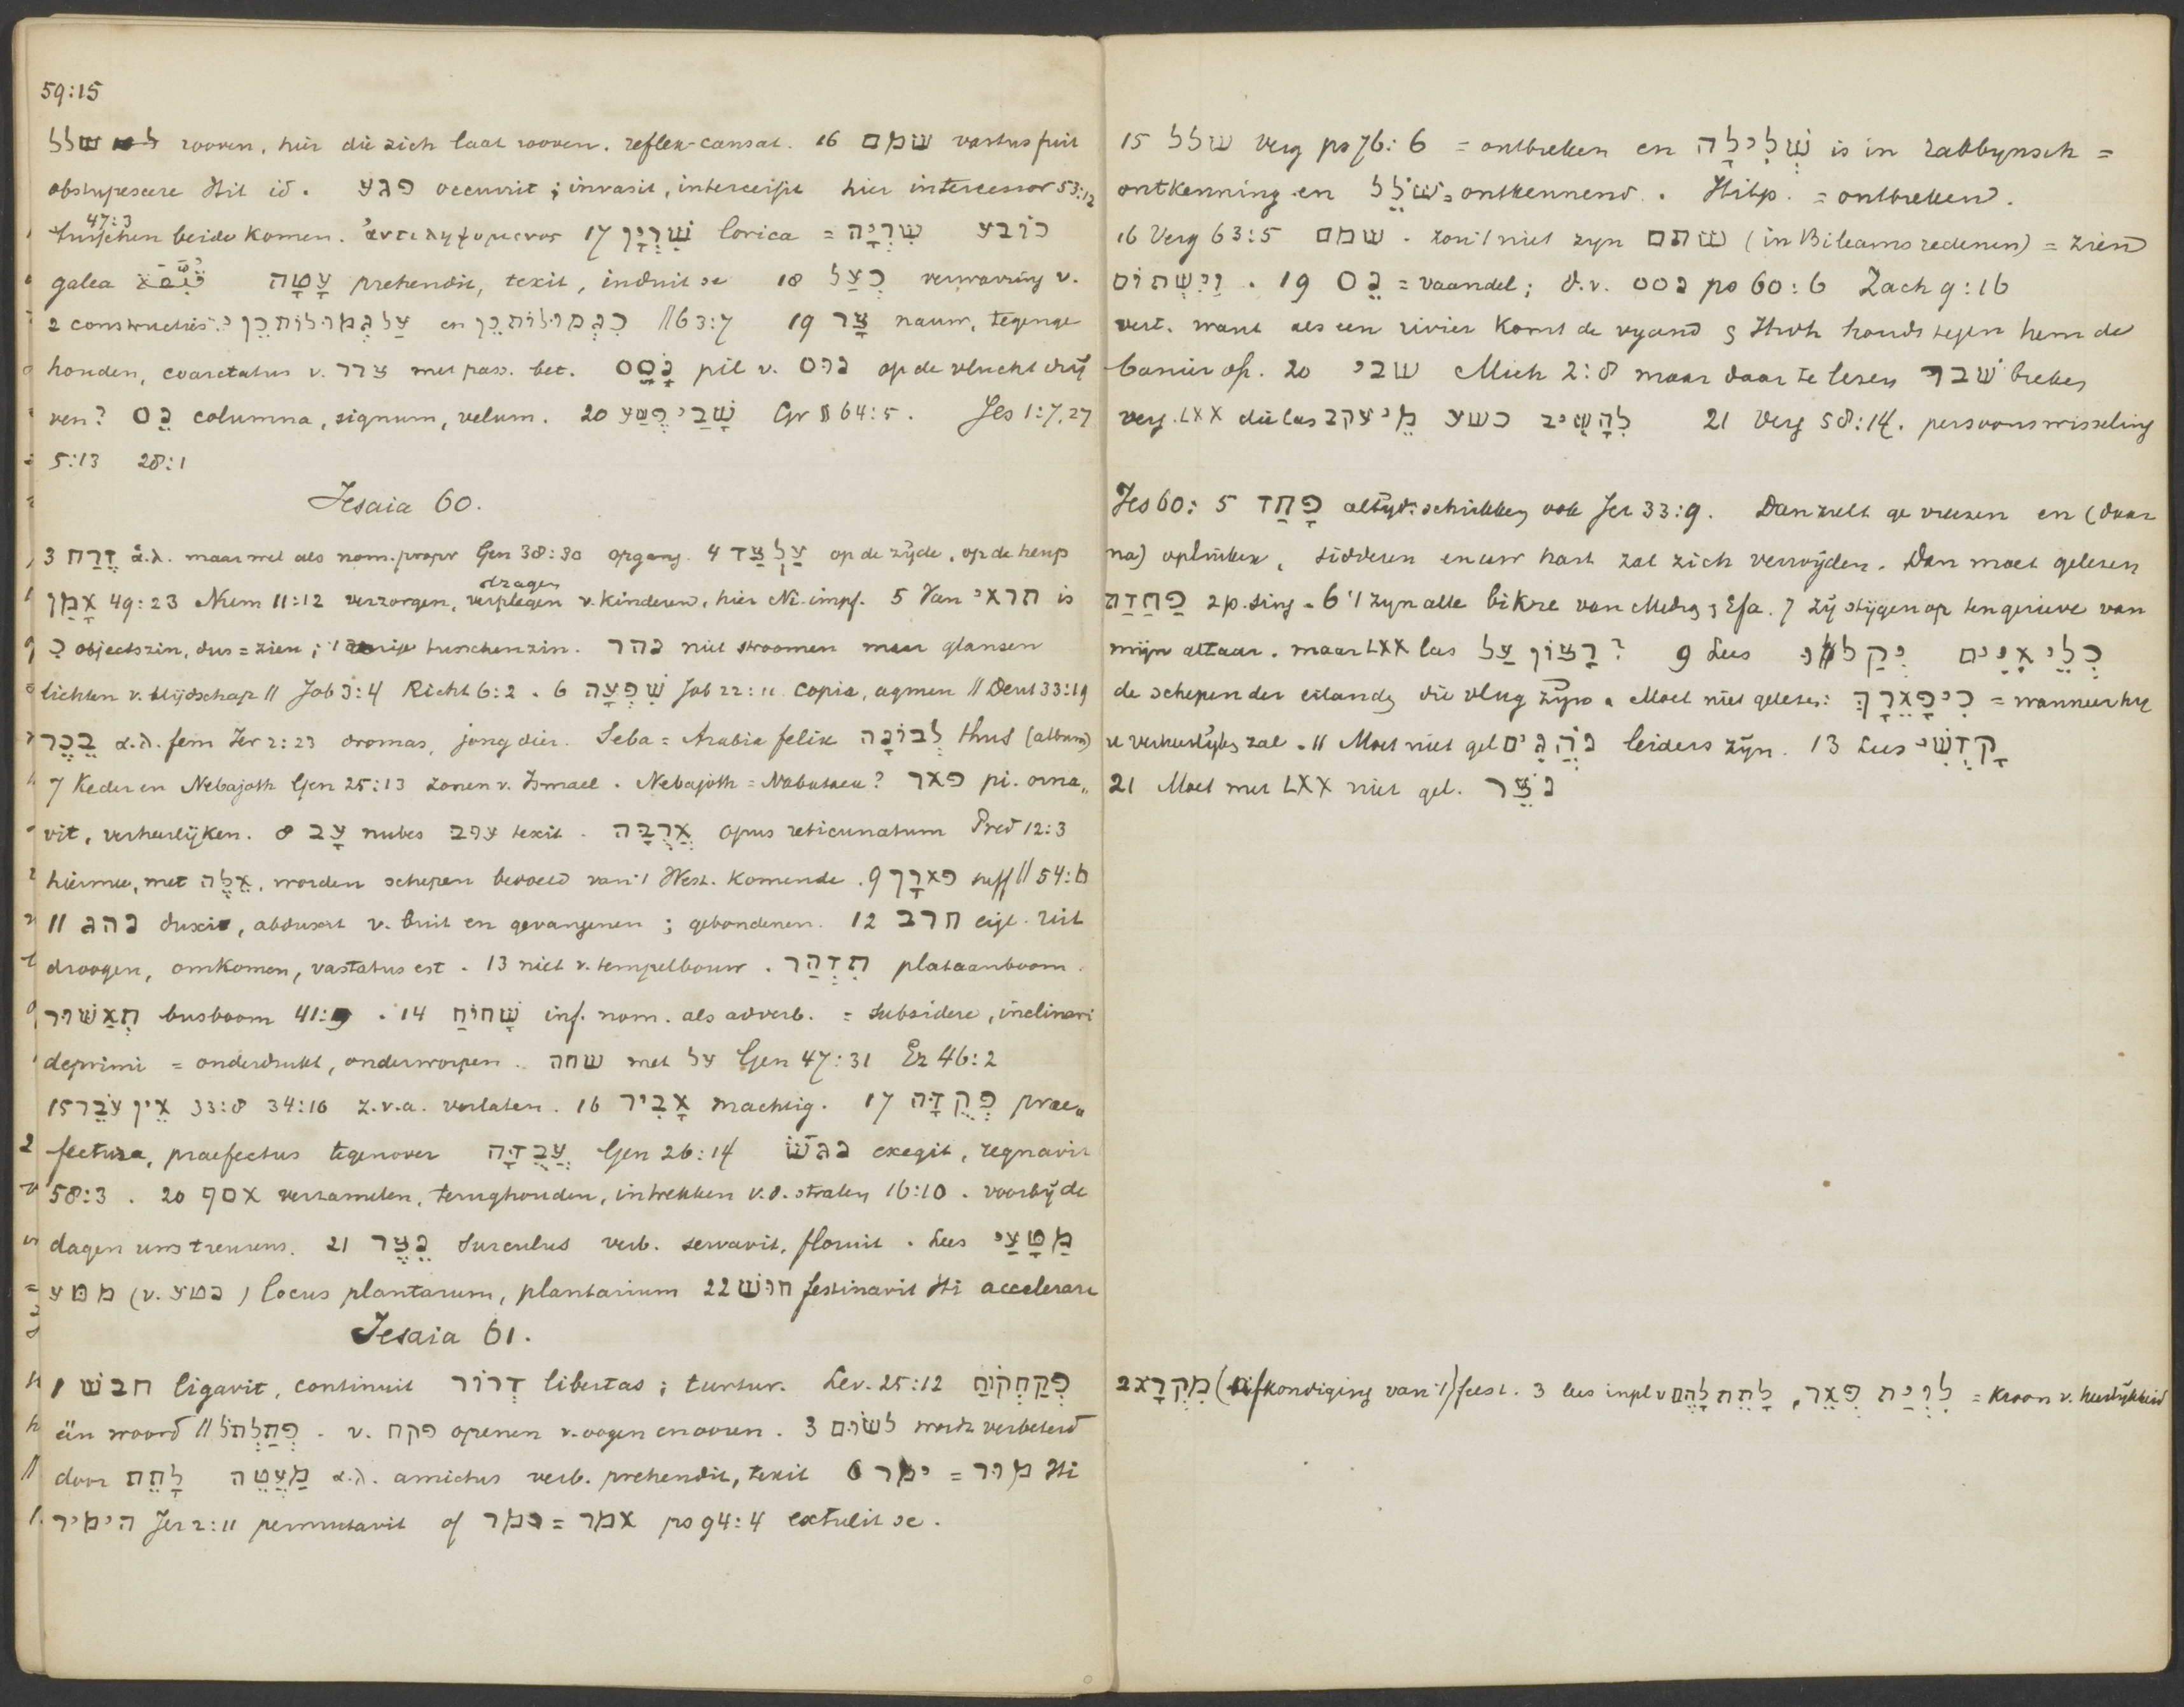 59:15
שלל rooven, hier die zich laat rooven. reflex-causat. 16 שמם vastus fuit
obstupescere Hit id. פגע occurrit; invasit, intercessit hier intercessor 53:12
47:3
tusschen beide komen. ἀντιλημψομενος 17 שִׁרְיָן lorica = שִׁרְיָה כובע
galea עָטָה prehendit, texit, induit se 18 כְּעַל verwarring v.
2 constructies: עַל גְּמֻלוֹת כֵּן en כִּגְמֻלוֹת כֵּן // 63:7 19 צָר nauw, tegenge
houden, coarctatus v. צרר met pass. bet. נֹסֵס pil v. נוס op de vlucht drij
ven? נֵס columna, signum, velum. 20 שָׁבֵי פֶשַׁע Gr § 64:5. Jes 1:7,27
5:13 28:1
Jesaia 60.
3 זֶרַח ἅ.λ. maar wel als nom. propr Gen 38:30 opgang. 4 עַל צַד op de zijde, op de heup
dragen
אָמַן 49:23 Num 11:12 verzorgen, verplegen v. kinderen, hier Ni. impf. 5 Van תראי is
כִּ objectszin, dus = zien; tusschenzin. נהר niet stroomen maar glansen
lichten v. blijdschap // Job 3:4 Richt 6:2. 6 שִׁפְעָה Job 22:11 copia, agmen // Deut 33:19
בֶּכֶר α.λ. fem Jer 2:23 dromas, jong dier. Seba = Arabia felix לְבוֹנָה thus (album)
7 Keder en Nebajoth Gen 25:13 zonen v. Ismael. Nebajoth = Nabataea? פאר pi. orna„
vit, verheerlijken. 8 עָב nubes עוב texit. אֲרֻבָּה opus reticunatum Pred 12:3
hiermee, met אֵלֶּה, worden schepen bedoeld van 't West. komende. 9 פארָך suff // 54:6
11 נהג duxit, abduxit v. buit en gevangenen; gebondenen. 12 חרב eigl. uit
droogen, omkomen, vastatus est. 13 niet v. tempelbouw. תִּדְהַר plataanboom.
תְּאַשּׁוּר busboom 41:9. 14 שָׁחוֹחַ inf. nom. als adverb. = subsidere, inclinari
deprimi = onderdrukt, onderworpen. שחה met על Gen 47:31 Ez 46:2
15 אֵין עֹבֵר 33:8 34:10 z.v.a. verlaten. 16 אָבִיר machtig. 17 פְּקֻדָּה prae„
fectura, praefectus tegenover עֲבֻדָּה Gen 26:14 נגשׂ exegit, regnavit
58:3. 20 אסף verzamelen, terughouden, intrekken v.d. stralen 16:10. voorbij de
dagen uws treurens. 21 נֵצֶר surculus verb. servavit, floruit. Lees מַטָּעַי
מטע (v. נטע) locus plantarum, plantarium 22 חוּשׁ festinavit Hi accelerare
Jesaia 61.
1 חבשׁ ligavit, continuit דְּרוֹר libertas; turtur. Lev. 25:12 פְּקַחְקוֹחַ
één woord // פְּתַלְתֹּל. v. פקח openen v. oogen en ooren. 3 לשׂום wordt verbeterd
door לָתֵת מַעֲטֶה α.λ. amictus verb. prehendit, texit 6 ימר = מור Hi
הימיר Jer 2:11 permutavit of אמר = ימר ps 94:4 extulit se.
15 שלל Verg ps 76:6 = ontbreken en שְׁלִילָה is in rabbynsch =
ontkenning en שֹׁלֵל = ontkennend. Hitp. = ontbreken.
16 Verg 63:5 שמם. zou 't niet zyn שתם (in Bileams redenen) = ziend
וַיִּשְׁתּוֹם. 19 נֵס = vaandel; d.v. נוס ps 60:6 Zach 9:16
vert. want als een rivier komt de vyand & Hwh houdt tegen hem de
banier op. 20 שבי Mich 2:8 maar daar te lezen שׁבר breken
verg. LXX die las לְהָשִׁיב פשע מִיעקב 21 Verg 58:14. persoonswisseling
Jes 60: 5 פָּחַד altyd: schrikken ook Jer 33:9. Dan zult ge vreezen en (daar
na) opluiken, sidderen en uw hart zal zich verwijden. Dan moet gelezen
פַחֲדַה 2 p. sing. 6 't zyn alle bikre van Midras & Efa. 7 zij stijgen op ten gerieve van
mijn altaar. maar LXX las רָצוֹן עַל? 9 Lees כְּלֵי אִיִּים יְקַלּוּ
de schepen der eilanden die vlug zyn. Moet niet gelezen: כִּי פֵאֲרָךְ = wanneer hy
u verheerlijken zal. 11 Moet niet gel נֹהֲגִים leiders zijn. 13 Lees קָדְשִׁי
21 Moet met LXX niet gel. נֹצֵר
2 מִקְרָא (afkondiging van 't) feest. 3 lees inpl v לָתֵת לָהֶם, לִוְיַת פְּאֵר = kroon v. heerlijkheid